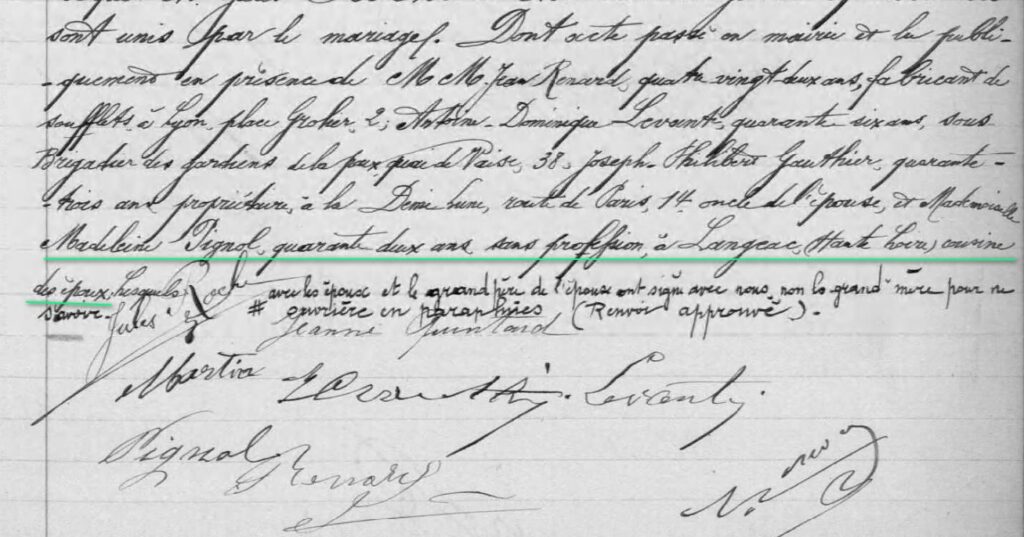 sont unis par le mariage. Dont acte passé en mairie et lu publi-
-quement en présence de M M. Jean Renard, quatre vingt deux ans, fabricant de
soufflets, à Lyon, place Grolier, 2, Antoine Dominique Levent, quarante six ans, sous
Brigadier des Gardiens de la paix quai de Vaise, 38, Joseph Philibert Gauthier, quarante-
-trois ans propriétaire, à la Demi Lune, route de Paris, 14 oncle de l'épouse, et Mademoiselle
Madeleine Pignol, quarante deux ans, sans profession, à Langeac, (Haute Loire) cousine
des époux, lesquels avec les époux et le grand père de l'époux ont signé avec nous, non la grand'mère pour ne
savoir. # ouvrière en parapluies (Renvoi approuvé).
Jules Roche Jeanne Quintard
Martin Levent
Pignol Renard